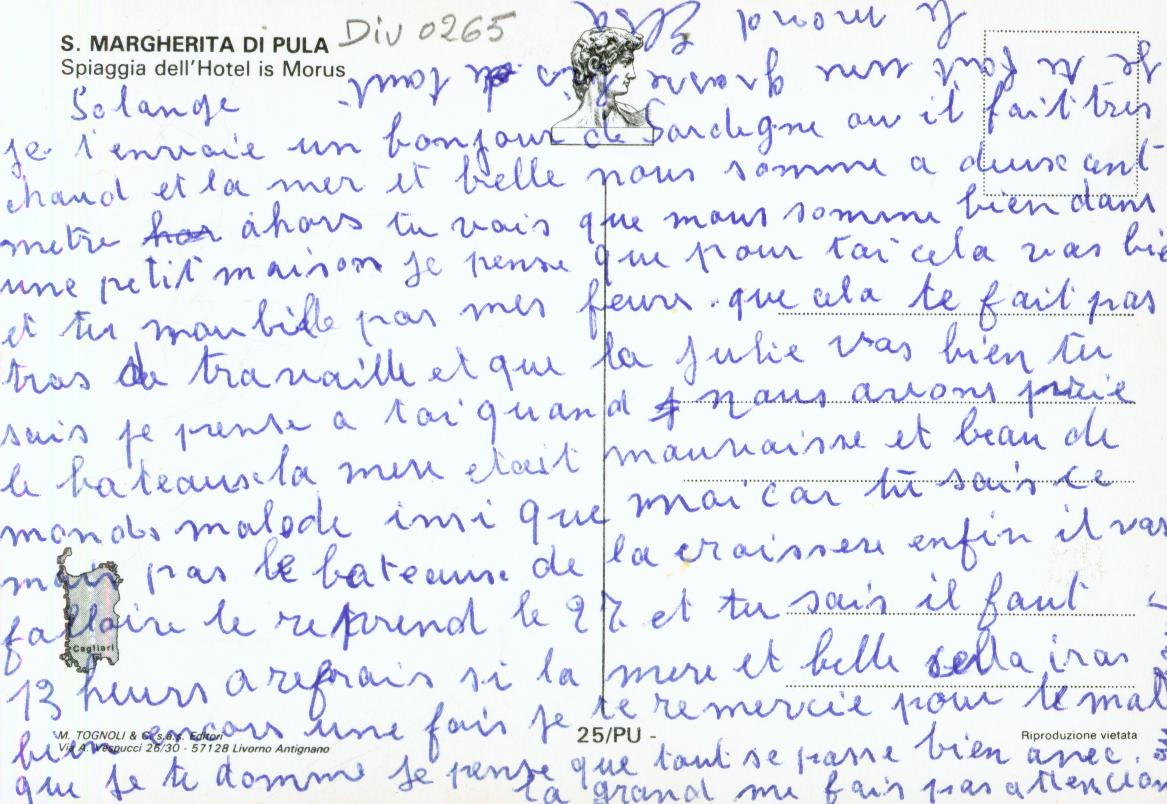 S. MARGHERITA DI PULA
Spiaggia dell'Hotel is Morus
Div 0265
Solange
je t'envoie un bonjour de Sardegne ou il fait tres
chaud et la mer et belle nous somme a deux cent
metre ahors tu vois que nous somme bien dans
une petit maison je pense que pour toi cela vas bie
et tu moublile pas mes feurs que cela te fait pas
tros de travaille et que la Julie vas bien tu
sais je pense a toi quand nous avons prie
le bateaux la mere etait mauvaisse et beau de
monds malode insi que moi car tu sais ce
mais pas le bateause de la craissere enfin il vas
fallaire le reprend le 27 et tu sais il faut
13 heurs a refrais si la mere et belle sella iras
bien encors une fois je te remercie pour le mal
que je te domme je pense que tout se passe bien avec
la grand me fais pas atencion
te tu fout
grosse tout
Elsa
Cagliari
M. TOGNOLI & C. s.a.s. Editori
Via A. Vespucci 26/30 - 57128 Livorno Antignano
25/PU -
Riproduzione vietata